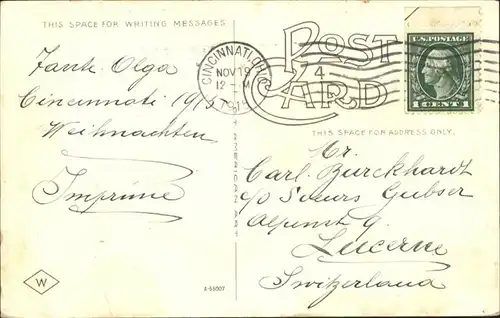 THIS SPACE FOR WRITING MESSAGES
POST
CARD
CINCINNATI, OHIO
NOV 19
12 - M
4
U.S. POSTAGE
1 CENT 1
Tante Olga
Cincinnati
Weihnachten
Imprimé
THIS SPACE FOR ADDRESS ONLY.
Mr.
Carl Burckhardt
c/o Soeurs Gubser
Alpenst 9.
Lucerne
Switzerland
W
A-55007